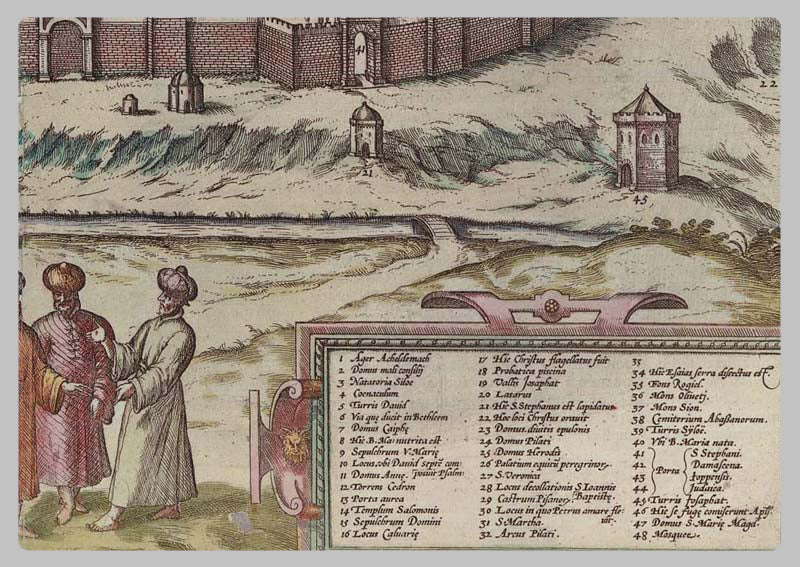 41
22
21
45
1 Ager Acheldemach
2 Domus mali consilij
3 Natatoria Siloe
4 Coenaculum
5 Turris David
6 Via que ducit in Bethleem
7 Domus Caiphę
8 Hic B. Ma: nutrita est
9 Sepulchrum V. Marię
10 Locus, vbi David septē com:
posuit Psalm:
11 Domus Annę.
12 Torrens Cedron
13 Porta aurea
14 Templum Salomonis
15 Sepulchrum Domini
16 Locus Calvarię
17 Hic Christus flagellatus fuit
18 Probatica piscina
19 Vallis Josaphat
20 Lazarus
21 Hic S. Stephanus est lapidatus
22 Hoc loci Christus oravit
23 Domus divitis epulonis
24 Domus Pilati
25 Domus Herodis
26 Palatium equitū peregrinor.
27 S. Veronica
28 Locus decollationis S Ioannis
Baptistę
29 Castrum Pisanor.
30 Locus in quo Petrus amare fle:
uit.
31 S. Martha
32 Arcus Pilati.
33
34 Hic Esaias serra disectus est
35 Fons Rogiel
36 Mons Olivetj.
37 Mons Sion.
38 Cimiterium Abaßianorum.
39 Turris Syloë.
40 Vbi B. Maria nata.
41 S Stephani.
42 Damascena.
Porta
43 Joppensis
44 Judaica.
45 Turris Josaphat.
46 Hic se fugę comiserunt Apl.
47 Domus S. Marię Magd
48 Mosquee.